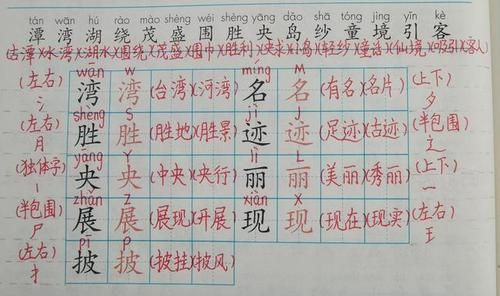 tán wān hú rào mào shèng wéi shèng yāng dǎo shā tóng jìng yǐn kè
潭 湾 湖 绕 茂 盛 围 胜 央 岛 纱 童 境 引 客
(古潭)(水湾)(湖水)(围绕)(茂盛)(围巾)(胜利)(央求)(小岛)(轻纱)(童话)(仙境)(吸引)(客人)
wān w míng M
(左右) 湾 湾 (台湾)(河湾) 名 名 (有名)(名片) (上下)
氵 shèng S jì J 夕
(左右) 胜 胜 (胜地)(胜景) 迹 迹 (足迹)(古迹) (半包围)
月 yāng Y lì L 辶
(独体字) 央 央 (中央)(央行) 丽 丽 (美丽)(秀丽) (上下)
丨 zhǎn Z xiàn X 一
(半包围) 展 展 (展现)(开展) 现 现 (现在)(现实) (左右)
尸 pī P 王
(左右) 披 披 (披挂)(披风)
扌